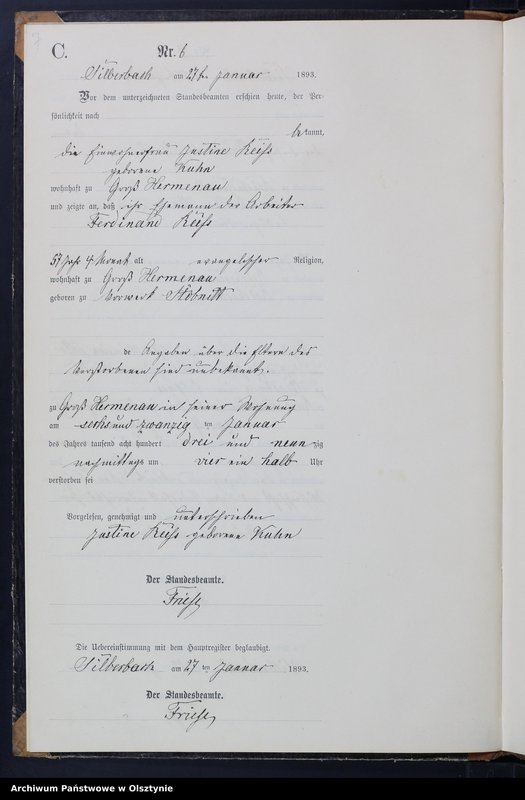 C.
Nr. 6
Silberbach am 27ten Januar 1893.
Vor dem unterzeichneten Standesbeamten erschien heute, der Per-
sönlichkeit nach
bekannt,
die Einwohnerfrau Justine Reiss
geborene Kuhn
wohnhaft zu Groß Hermenau
und zeigte an, daß ihr Ehemann der Arbeiter
Ferdinand Reiss
57 Jahr 4 Monat alt evangelischer Religion,
wohnhaft zu Groß Hermenau
geboren zu Vorwerk Stobnitt
de Angaben über die Eltern des
Verstorbenen sind unbekannt.
zu Groß Hermenau in seiner Wohnung
am sechs und zwanzig ten Januar
des Jahres tausend acht hundert drei und neun zig
nachmittags um vier ein halb Uhr
verstorben sei
Vorgelesen, genehmigt und unterschrieben
Justine Reiss geborene Kuhn
Der Standesbeamte.
Friese
Die Uebereinstimmung mit dem Hauptregister beglaubigt.
Silberbach am 27 ten Januar 1893.
Der Standesbeamte.
Friese
Archiwum Państwowe w Olsztynie